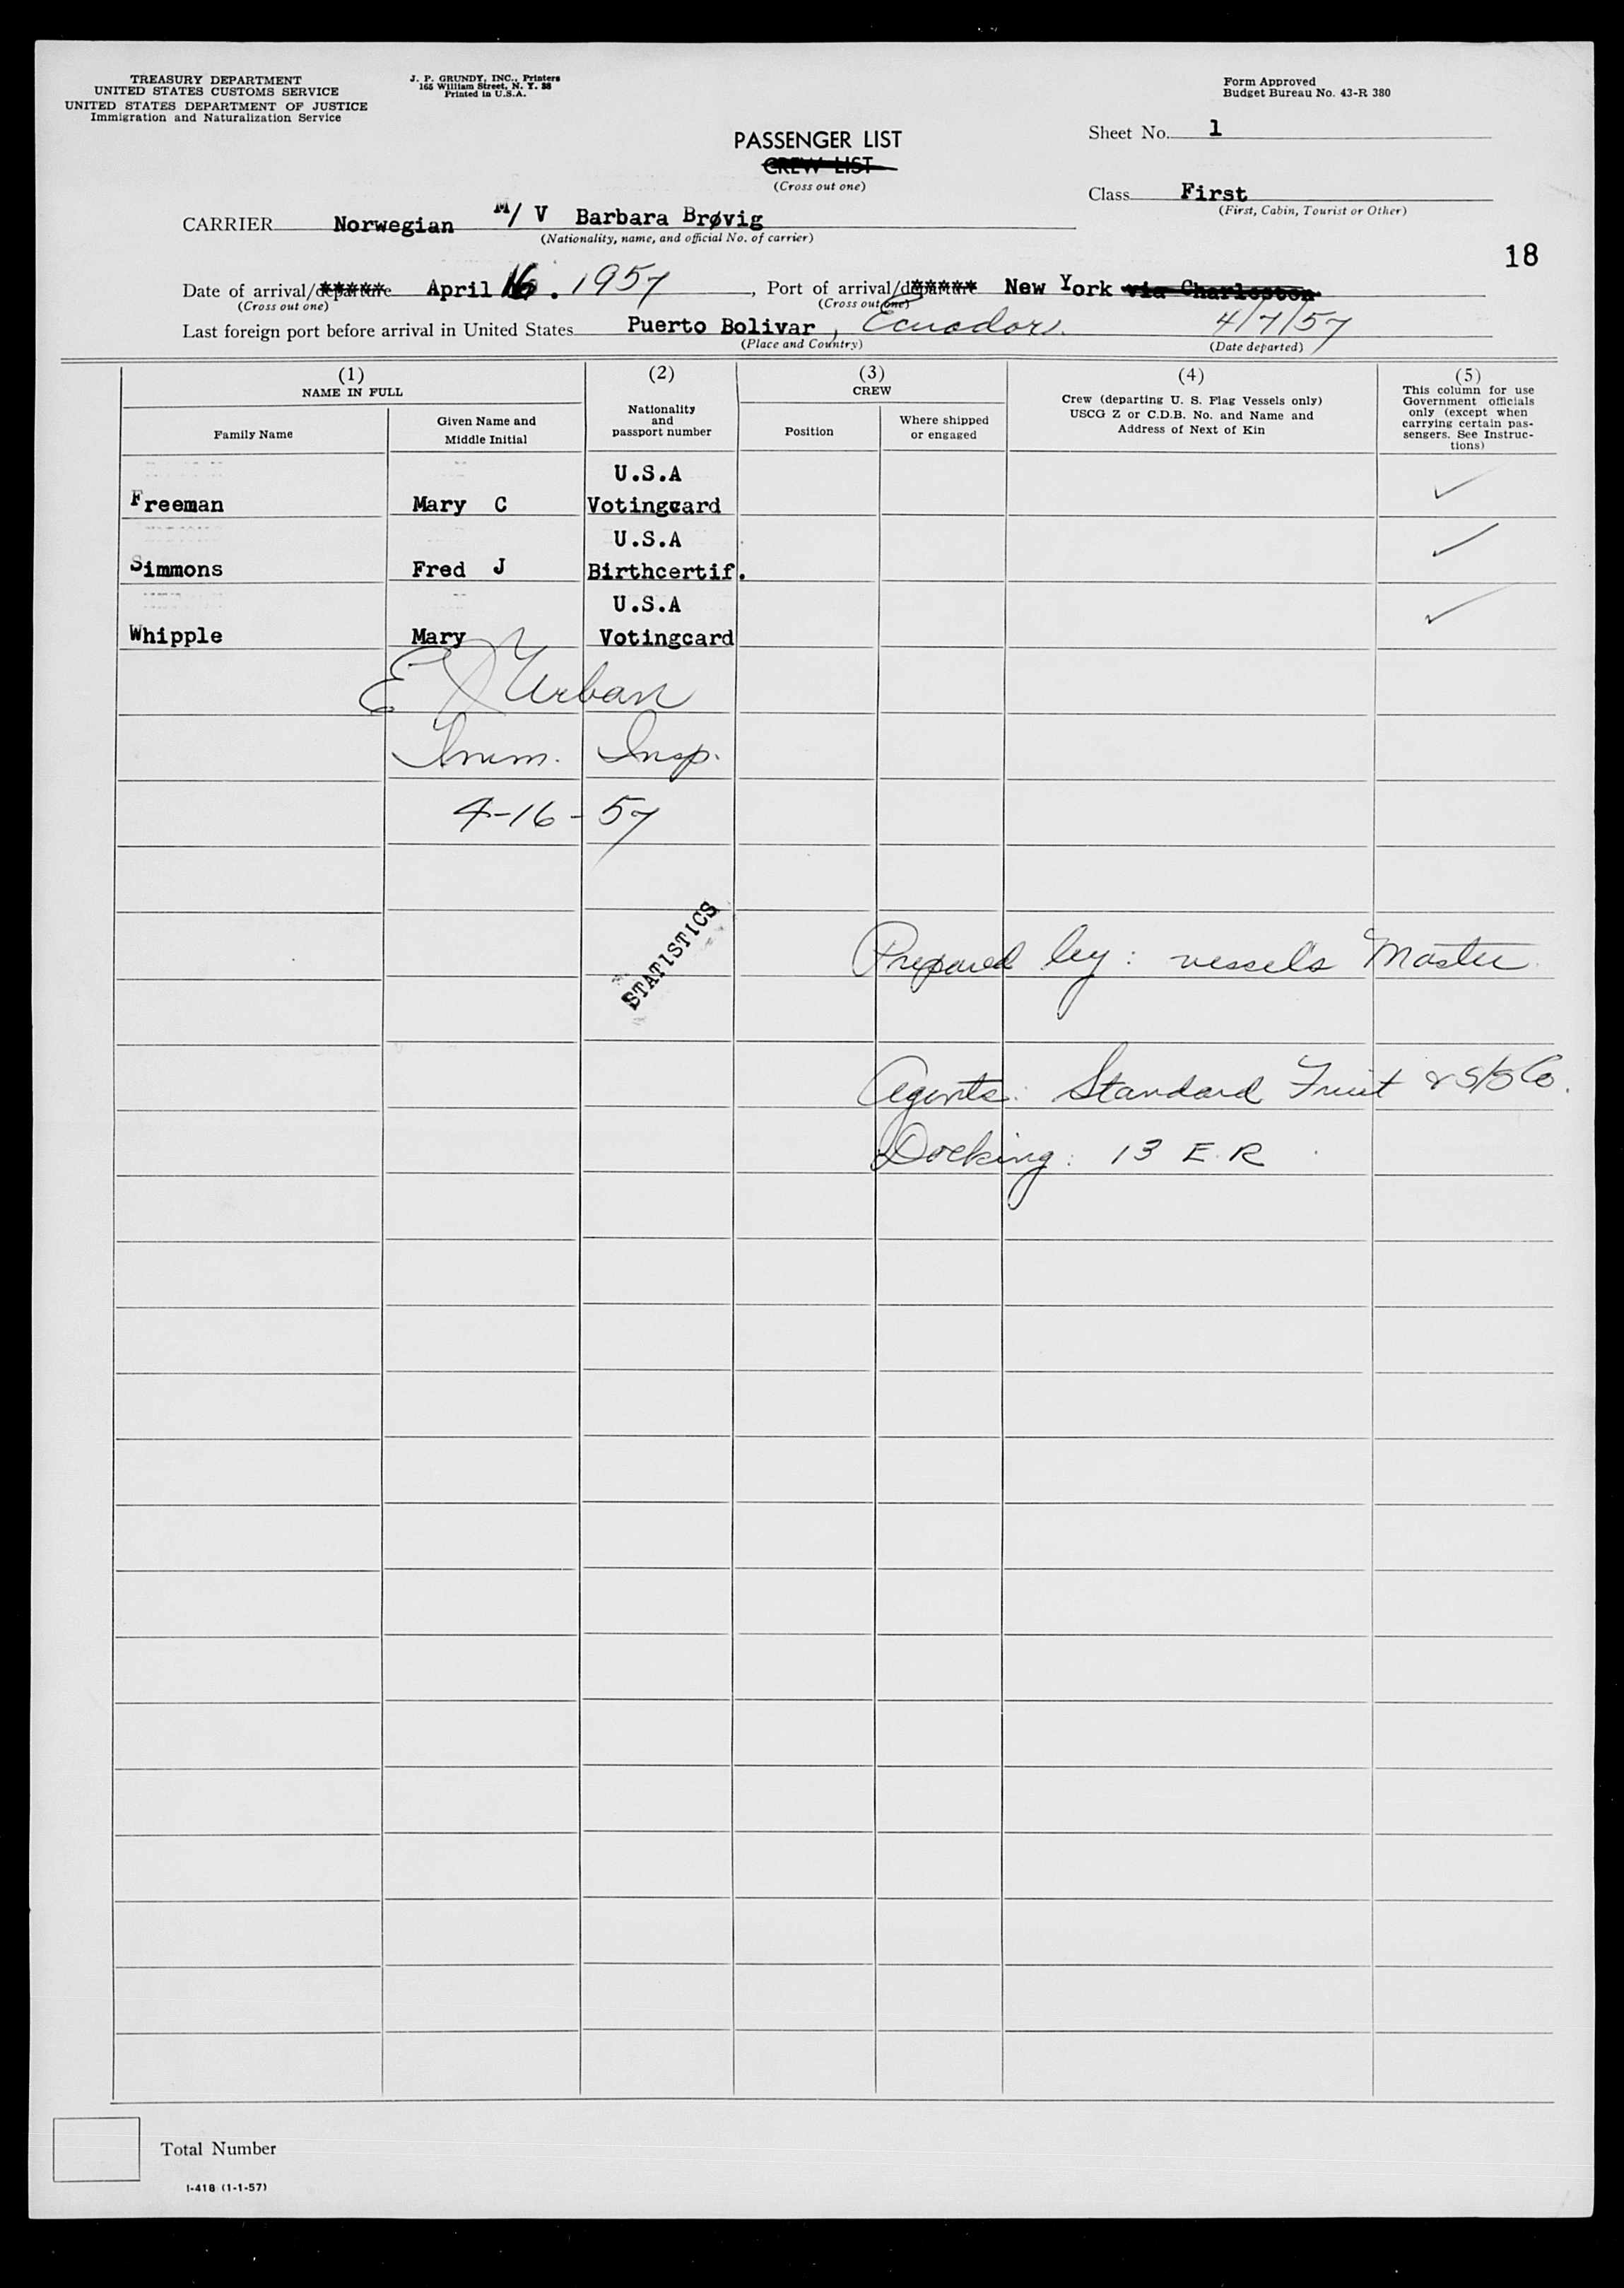 TREASURY DEPARTMENT
UNITED STATES CUSTOMS SERVICE
UNITED STATES DEPARTMENT OF JUSTICE
Immigration and Naturalization Service
J. P. GRUNDY, INC., Printers
165 William Street, N. Y. 38
Printed in U.S.A.
Form Approved
Budget Bureau No. 43-R 380
PASSENGER LIST
CREW LIST
(Cross out one)
Sheet No. 1
Class First
(First, Cabin, Tourist or Other)
CARRIER Norwegian M/ V Barbara Brøvig
(Nationality, name, and official No. of carrier)
18
Date of arrival/departure April 16. 1957, Port of arrival/departure New York via Charleston
(Cross out one) (Cross out one)
Last foreign port before arrival in United States Puerto Bolivar, Ecuador. 4/7/57
(Place and Country) (Date departed)
(1) (2) (3) (4) (5)
NAME IN FULL
Family Name
Given Name and
Middle Initial
Nationality
and
passport number
CREW
Position
Where shipped
or engaged
Crew (departing U. S. Flag Vessels only)
USCG Z or C.D.B. No. and Name and
Address of Next of Kin
This column for use
Government officials
only (except when
carrying certain pas-
sengers. See Instruc-
tions)
U.S.A
Freeman Mary C Votingcard
U.S.A
Simmons Fred J Birthcertif.
U.S.A
Whipple Mary Votingcard
E J Urban
Imm. Insp.
4-16-57
STATISTICS
Prepared by: vessels Master
Agents: Standard Fruit & S/S Co.
Docking: 13 E. R
Total Number
I-418 (1-1-57)